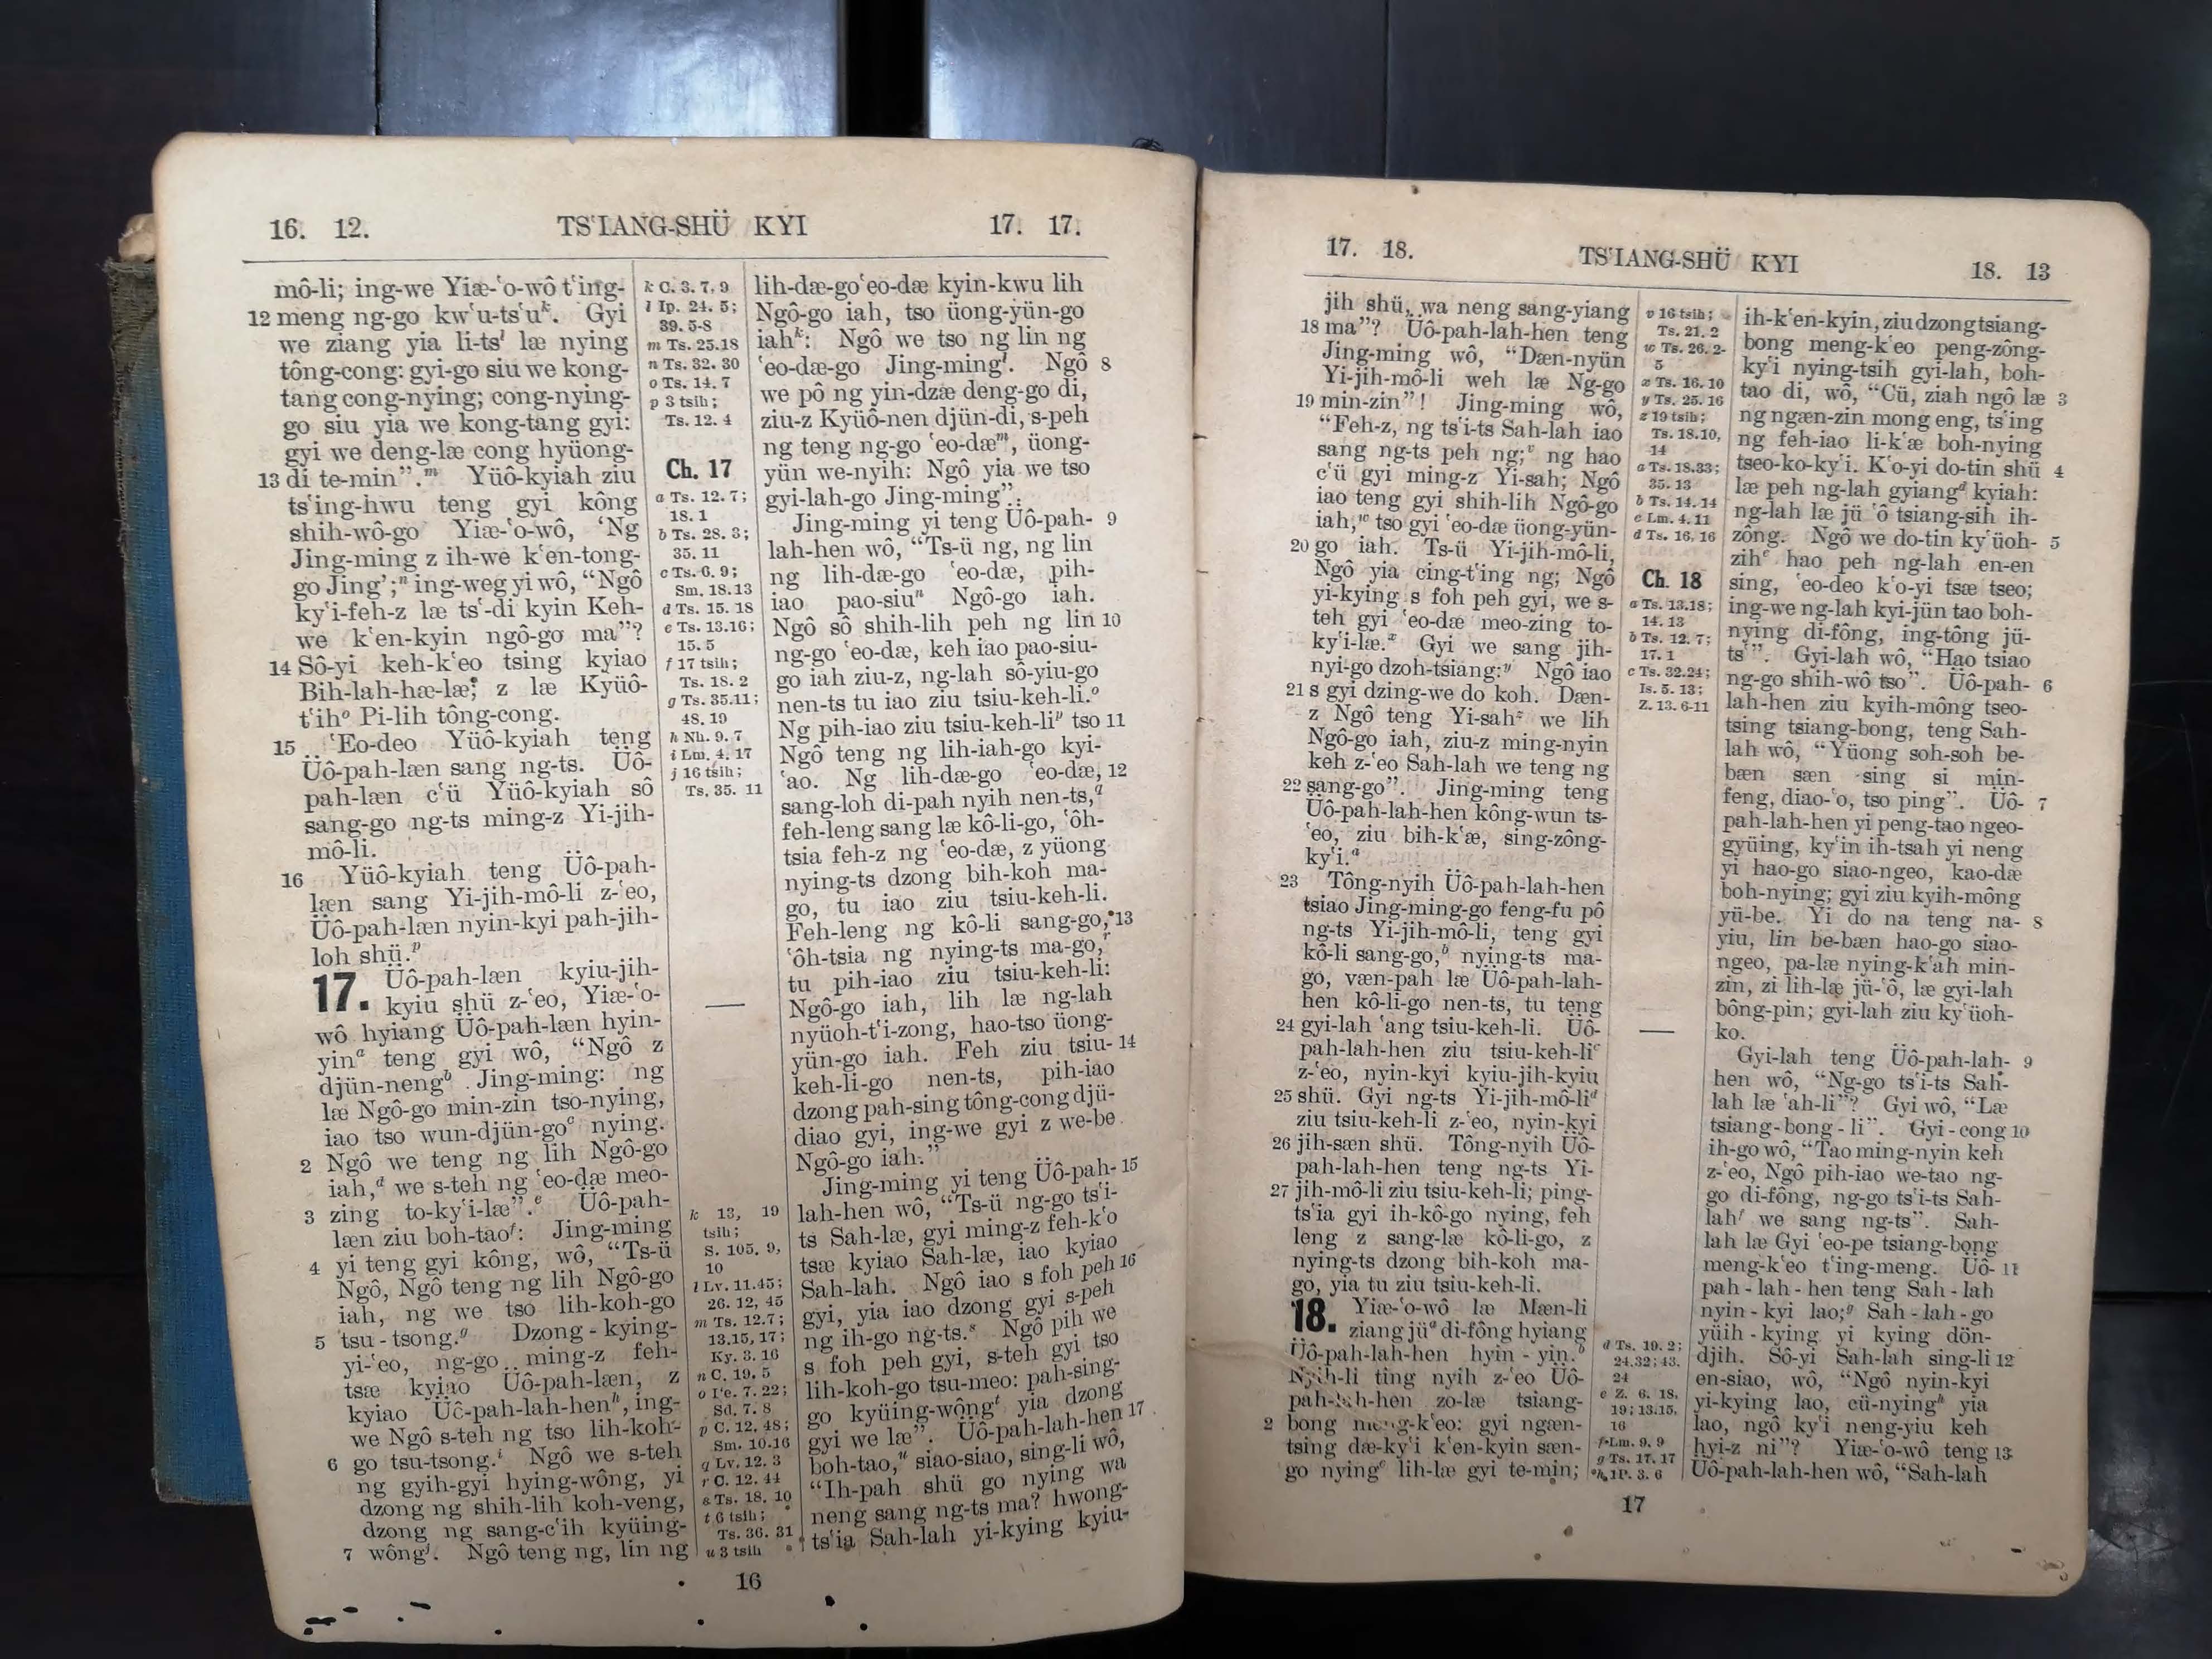 16. 12. TSʻIANG-SHÜ KYI 17. 17.
mô-li; ing-we Yiæ-ʻo-wô tʻing-
12 meng ng-go kwʻu-tsʻuᵏ. Gyi
we ziang yia li-tsˡ læ nying
tông-cong: gyi-go siu we kong-
tang cong-nying; cong-nying-
go siu yia we kong-tang gyi:
gyi we deng-læ cong hyüong-
13 di te-min”.ᵐ Yüô-kyiah ziu
tsʻing-hwu teng gyi kông
shih-wô-go Yiæ-ʻo-wô, ‘Ng
Jing-ming z ih-we kʻen-tong-
go Jing’;ⁿ ing-we gyi wô, “Ngô
kyʻi-feh-z læ tsʻ-di kyin Keh-
we kʻen-kyin ngô-go ma”?
14 Sô-yi keh-kʻeo tsing kyiao
Bih-lah-hæ-læ; z læ Kyüô-
tʻihᵒ Pi-lih tông-cong.
15 ʻEo-deo Yüô-kyiah teng
Üô-pah-læn sang ng-ts. Üô-
pah-læn cʻü Yüô-kyiah sô
sang-go ng-ts ming-z Yi-jih-
mô-li.
16 Yüô-kyiah teng Üô-pah-
læn sang Yi-jih-mô-li z-ʻeo,
Üô-pah-læn nyin-kyi pah-jih-
loh shü.ᵖ
17. Üô-pah-læn kyiu-jih-
kyiu shü z-ʻeo, Yiæ-ʻo-
wô hyiang Üô-pah-læn hyin-
yinᵃ teng gyi wô, “Ngô z
djün-nengᵇ Jing-ming: ng
læ Ngô-go min-zin tso-nying,
iao tso wun-djün-goᶜ nying.
2 Ngô we teng ng lih Ngô-go
iah,ᵈ we s-teh ng ʻeo-dæ meo-
3 zing to-kyʻi-læ”.ᵉ Üô-pah-
læn ziu boh-taoᶠ: Jing-ming
4 yi teng gyi kông, wô, “Ts-ü
Ngô, Ngô teng ng lih Ngô-go
iah, ng we tso lih-koh-go
5 tsu-tsong.ᵍ Dzong-kying-
yi-ʻeo, ng-go ming-z feh-
tsæ kyiao Üô-pah-læn, z
kyiao Üô-pah-lah-henʰ, ing-
we Ngô s-teh ng tso lih-koh-
6 go tsu-tsong.ⁱ Ngô we s-teh
ng gyih-gyi hying-wông, yi
dzong ng shih-lih koh-veng,
dzong ng sang-cʻih kyüing-
7 wôngʲ. Ngô teng ng, lin ng
k C. 3. 7, 9
l Ip. 24. 5;
39. 5-8
m Ts. 25.18
n Ts. 32. 30
o Ts. 14. 7
p 3 tsih;
Ts. 12. 4
Ch. 17
a Ts. 12. 7;
18. 1
b Ts. 28. 3;
35. 11
c Ts. 6. 9;
Sm. 18.13
d Ts. 15. 18
e Ts. 13.16;
15. 5
f 17 tsih;
Ts. 18. 2
g Ts. 35.11;
48. 19
h Nh. 9. 7
i Lm. 4. 17
j 16 tsih;
Ts. 35. 11
k 13, 19
tsih;
S. 105. 9,
10
l Lv. 11.45;
26. 12, 45
m Ts. 12.7;
13.15, 17;
Ky. 3. 16
n C. 19. 5
o Pe. 7. 22;
Sd. 7. 8
p C. 12. 48;
Sm. 10.16
q Lv. 12. 3
r C. 12. 44
s Ts. 18. 10
t 6 tsih;
Ts. 36. 31
u 3 tsih
lih-dæ-go ʻeo-dæ kyin-kwu lih
Ngô-go iah, tso üong-yün-go
iahᵏ: Ngô we tso ng lin ng
ʻeo-dæ-go Jing-mingˡ. Ngô 8
we pô ng yin-dzæ deng-go di,
ziu-z Kyüô-nen djün-di, s-peh
ng teng ng-go ʻeo-dæᵐ, üong-
yün we-nyih: Ngô yia we tso
gyi-lah-go Jing-ming”.
Jing-ming yi teng Üô-pah- 9
lah-hen wô, “Ts-ü ng, ng lin
ng lih-dæ-go ʻeo-dæ, pih-
iao pao-siuⁿ Ngô-go iah.
Ngô sô shih-lih peh ng lin 10
ng-go ʻeo-dæ, keh iao pao-siu-
go iah ziu-z, ng-lah sô-yiu-go
nen-ts tu iao ziu tsiu-keh-li.ᵒ
Ng pih-iao ziu tsiu-keh-liᵖ tso 11
Ngô teng ng lih-iah-go kyi-
ʻao. Ng lih-dæ-go ʻeo-dæ, 12
sang-loh di-pah nyih nen-ts,ᑫ
feh-leng sang læ kô-li-go, ʻôh-
tsia feh-z ng ʻeo-dæ, z yüong
nying-ts dzong bih-koh ma-
go, tu iao ziu tsiu-keh-li.
Feh-leng ng kô-li sang-go, 13
ʻôh-tsia ng nying-ts ma-go,ʳ
tu pih-iao ziu tsiu-keh-li:
Ngô-go iah, lih læ ng-lah
nyüoh-tʻi-zong, hao-tso üong-
yün-go iah. Feh ziu tsiu- 14
keh-li-go nen-ts, pih-iao
dzong pah-sing tông-cong djü-
diao gyi, ing-we gyi z we-be
Ngô-go iah.”
Jing-ming yi teng Üô-pah- 15
lah-hen wô, “Ts-ü ng-go tsʻi-
ts Sah-læ, gyi ming-z feh-kʻo
tsæ kyiao Sah-læ, iao kyiao
Sah-lah. Ngô iao s foh peh 16
gyi, yia iao dzong gyi s-peh
ng ih-go ng-ts.ˢ Ngô pih we
s foh peh gyi, s-teh gyi tso
lih-koh-go tsu-meo: pah-sing-
go kyüing-wôngᵗ yia dzong
gyi we læ”. Üô-pah-lah-hen 17
boh-tao,ᵘ siao-siao, sing-li wô,
“Ih-pah shü go nying wa
neng sang ng-ts ma? hwong-
tsʻia Sah-lah yi-kying kyiu-
16
17. 18. TSʻIANG-SHÜ KYI 18. 13
jih shü, wa neng sang-yiang
18 ma”? Üô-pah-lah-hen teng
Jing-ming wô, “Dæn-nyün
Yi-jih-mô-li weh læ Ng-go
19 min-zin”! Jing-ming wô,
“Feh-z, ng tsʻi-ts Sah-lah iao
sang ng-ts peh ng;ᵛ ng hao
cʻü gyi ming-z Yi-sah; Ngô
iao teng gyi shih-lih Ngô-go
iah,ʷ tso gyi ʻeo-dæ üong-yün-
20 go iah. Ts-ü Yi-jih-mô-li,
Ngô yia cing-tʻing ng; Ngô
yi-kying s foh peh gyi, we s-
teh gyi ʻeo-dæ meo-zing to-
kyʻi-læ.ˣ Gyi we sang jih-
nyi-go dzoh-tsiang:ʸ Ngô iao
21 s gyi dzing-we do koh. Dæn-
z Ngô teng Yi-sahᶻ we lih
Ngô-go iah, ziu-z ming-nyin
keh z-ʻeo Sah-lah we teng ng
22 sang-go”. Jing-ming teng
Üô-pah-lah-hen kông-wun ts-
ʻeo, ziu bih-kʻæ, sing-zông-
kyʻi.ᵃ
23 Tông-nyih Üô-pah-lah-hen
tsiao Jing-ming-go feng-fu pô
ng-ts Yi-jih-mô-li, teng gyi
kô-li sang-go,ᵇ nying-ts ma-
go, væn-pah læ Üô-pah-lah-
hen kô-li-go nen-ts, tu teng
24 gyi-lah ʻang tsiu-keh-li. Üô-
pah-lah-hen ziu tsiu-keh-liᶜ
z-ʻeo, nyin-kyi kyiu-jih-kyiu
25 shü. Gyi ng-ts Yi-jih-mô-liᵈ
ziu tsiu-keh-li z-ʻeo, nyin-kyi
26 jih-sæn shü. Tông-nyih Üô-
pah-lah-hen teng ng-ts Yi-
27 jih-mô-li ziu tsiu-keh-li; ping-
tsʻia gyi ih-kô-go nying, feh
leng z sang-læ kô-li-go, z
nying-ts dzong bih-koh ma-
go, yia tu ziu tsiu-keh-li.
18. Yiæ-ʻo-wô læ Mæn-li
ziang jüᵃ di-fông hyiang
Üô-pah-lah-hen hyin-yin.ᵇ
Nyih-li ting nyih z-ʻeo Üô-
pah-lah-hen zo-læ tsiang-
2 bong meng-kʻeo: gyi ngæn-
tsing dæ-kyʻi kʻen-kyin sæn-
go nyingᶜ lih-læ gyi te-min;
v 16 tsih;
Ts. 21. 2
w Ts. 26. 2-
5
x Ts. 16. 10
y Ts. 25. 16
z 19 tsih;
Ts. 18.10,
14
a Ts. 18.33;
35. 13
b Ts. 14. 14
c Lm. 4. 11
d Ts. 16. 16
Ch. 18
a Ts. 13.18;
14. 13
b Ts. 12. 7;
17. 1
c Ts. 32.24;
Is. 5. 13;
Z. 13. 6-11
d Ts. 19. 2;
24.32; 43.
24
e Z. 6. 18,
19; 13.15,
16
f Lm. 9. 9
g Ts. 17. 17
h 1P. 3. 6
ih-kʻen-kyin, ziu dzong tsiang-
bong meng-kʻeo peng-zông-
kyʻi nying-tsih gyi-lah, boh-
tao di, wô, “Cü, ziah ngô læ 3
ng ngæn-zin mong eng, tsʻing
ng feh-iao li-kʻæ boh-nying
tseo-ko-kyʻi. Kʻo-yi do-tin shü 4
læ peh ng-lah gyiangᵈ kyiah:
ng-lah læ jü ʻô tsiang-sih ih-
zông. Ngô we do-tin kyʻüoh- 5
zihᵉ hao peh ng-lah en-en
sing, ʻeo-deo kʻo-yi tsæ tseo;
ing-we ng-lah kyi-jün tao boh-
nying di-fông, ing-tông jü-
tsʻ”. Gyi-lah wô, “Hao tsiao
ng-go shih-wô tso”. Üô-pah- 6
lah-hen ziu kyih-mông tseo-
tsing tsiang-bong, teng Sah-
lah wô, “Yüong soh-soh be-
bæn sæn sing si min-
feng, diao-ʻo, tso ping”. Üô- 7
pah-lah-hen yi peng-tao ngeo-
gyüing, kyʻin ih-tsah yi neng
yi hao-go siao-ngeo, kao-dæ
boh-nying; gyi ziu kyih-mông
yü-be. Yi do na teng na- 8
yiu, lin be-bæn hao-go siao-
ngeo, pa-læ nying-kʻah min-
zin, zi lih-læ jü-ʻô, læ gyi-lah
bông-pin; gyi-lah ziu kyʻüoh-
ko.
Gyi-lah teng Üô-pah-lah- 9
hen wô, “Ng-go tsʻi-ts Sah-
lah læ ʻah-li”? Gyi wô, “Læ
tsiang-bong-li”. Gyi-cong 10
ih-go wô, “Tao ming-nyin keh
z-ʻeo, Ngô pih-iao we-tao ng-
go di-fông, ng-go tsʻi-ts Sah-
lahᶠ we sang ng-ts”. Sah-
lah læ Gyi ʻeo-pe tsiang-bong
meng-kʻeo tʻing-meng. Üô- 11
pah-lah-hen teng Sah-lah
nyin-kyi lao;ᵍ Sah-lah-go
yüih-kying yi kying dön-
djih. Sô-yi Sah-lah sing-li 12
en-siao, wô, “Ngô nyin-kyi
yi-kying lao, cü-nyingʰ yia
lao, ngô kyʻi neng-yiu keh
hyi-z ni”? Yiæ-ʻo-wô teng 13
Üô-pah-lah-hen wô, “Sah-lah
17